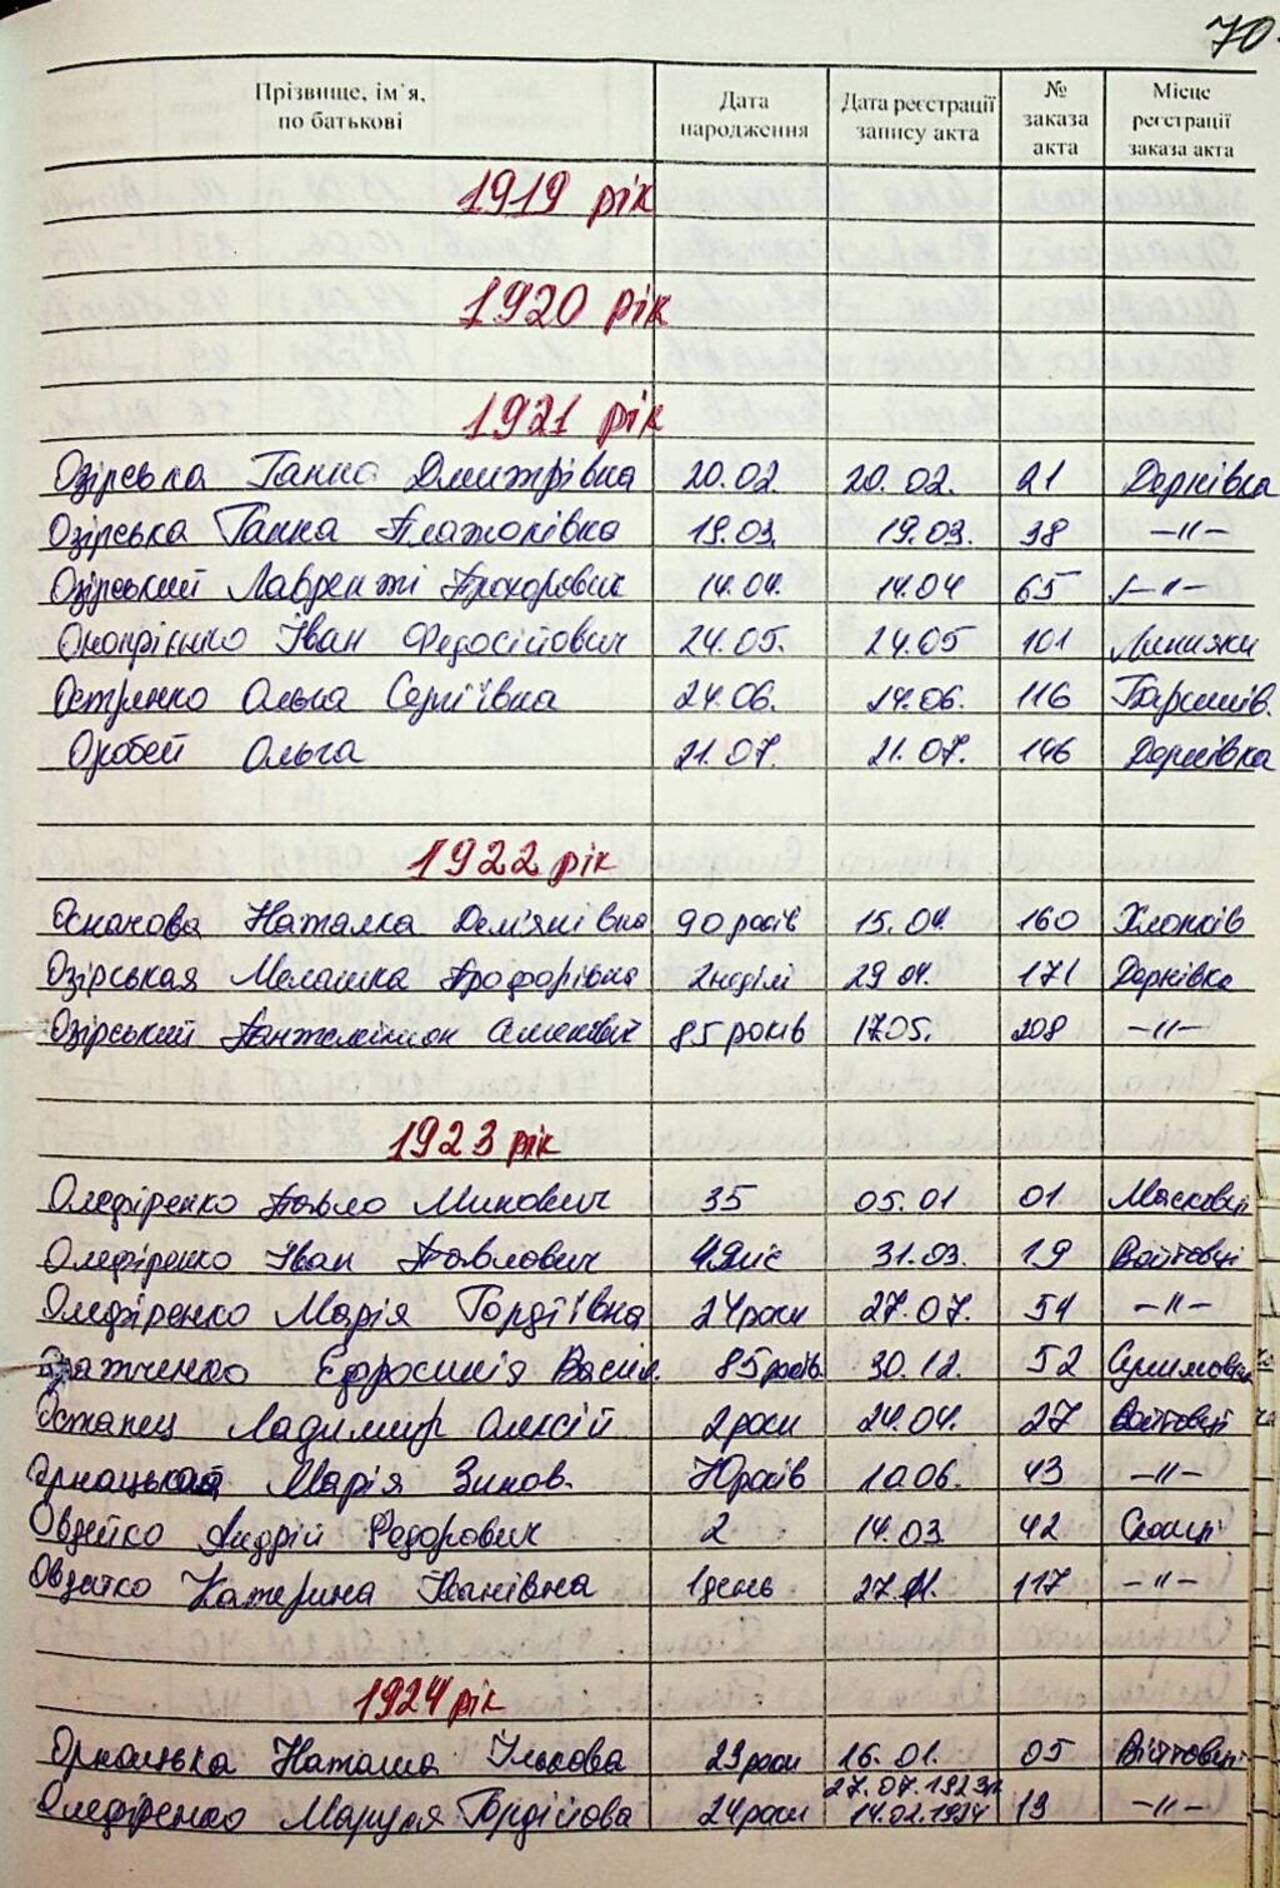 70.
Прізвище, ім'я, по батькові | Дата народження | Дата реєстрації запису акта | № заказа акта | Місце реєстрації заказа акта
1919 рік
1920 рік
1921 рік
Озірська Ганна Дмитрівна 20.02. 20.02. 21 Дернівка
Озірська Ганна Платонівна 19.03. 19.03. 38 —"—
Озірський Лаврентій Прохорович 14.04. 14.04 65 —"—
Онопрієнко Іван Федосійович 24.05. 24.05 101 Линняки
Остренко Ольга Сергіївна 24.06. 24.06. 116
Оробей Ольга 21.07. 21.07. 146 Дернівка
1922 рік
Наталка Дем'янівна 90 років 15.04. 160 Хлопків
Озірськая Мелашка 2 неділі 29.04. 171 Дернівка
Озірський 85 років 17.05. 208 —"—
1923 рік
Олефіренко Павло Минович 35 05.01 01.
Олефіренко Іван Павлович 31.03. 19 Войтовці
Олефіренко Марія Гордіївна 24 роки 27.07. 54 —"—
Єфросинія Васил. 85 років 30.12. 52
Остапец Ладимир Олексій 2 роки 24.04. 27 Войтовці
Марія Зинов. 43 —"—
Овдейко Андрій Федорович 2 14.03 42
Катерина Іванівна 1 день 117 —"—
1924 рік
Орнацька Наташа Ількова 23 роки 16.01. 05 Війтовці
Олефіренко Маруся Гордійова 24 роки 27.07.1923р. 14.02.1924 13 —"—